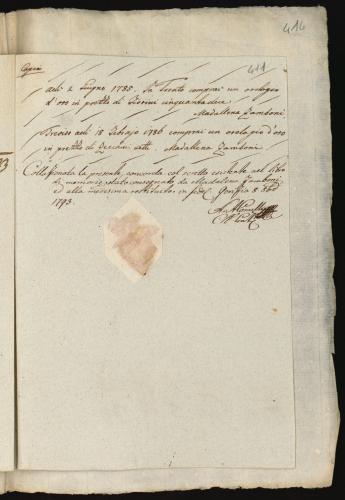 414
Copia
411
adi 2 Giugno 1785. In Trento comprai un orologio
d'oro in prezzo di Fiorini cinquantadue
Madallena Zamboni
Treviso adi 18 Febrajo 1786 comprai un orologio d'oro
in prezzo di Zecchini otto Madallena Zamboni
Collazionata la presente, concorda col scritto esistente nel libro
di memorie statoci consegnato da Madalena Zamboni,
ed alla medesima restituito. in fede
1793.